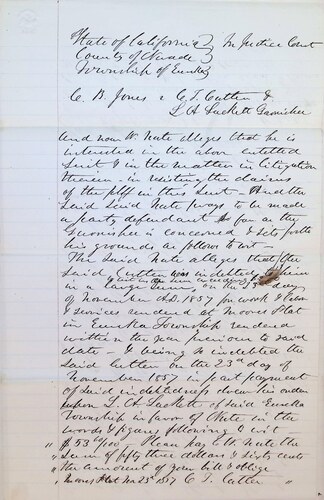 State of California } In Justice Court
County of Nevada }
Township of Eureka }
C. B. Jones v C. T. Cutten &
L A Sackett Garnishee
And now W. Nute alleges that he is
interested in the above entitled
Suit & in the matter in litigation
therein - in resisting the claims
of the plff in this Suit - And the
said Nute prays to be made
a party defendant so far as the
Garnishee is concerned & sets forth
his grounds as follows to wit -
The Said Nute alleges that the
said Cutten was indebted to him
in a large sum on the 23d day
of November A.D. 1857 for work & labor
& services rendered at Moores Flat
in Eureka Township rendered
within the year previous to said
date - & being so indebted the
said Cutten on the 23rd day of
November 1857 in part payment
of said indebtedness drew his order
upon L. A. Sackett of said Eureka
Township in favor of Nute in the
words & figures following to wit
" $53 6/100 - Please pay W. Nute the
" sum of fifty three dollars & sixty cents
" the amount of your bill & oblige
" Moores Flat Nov 23d 1857 C. T. Cutten "